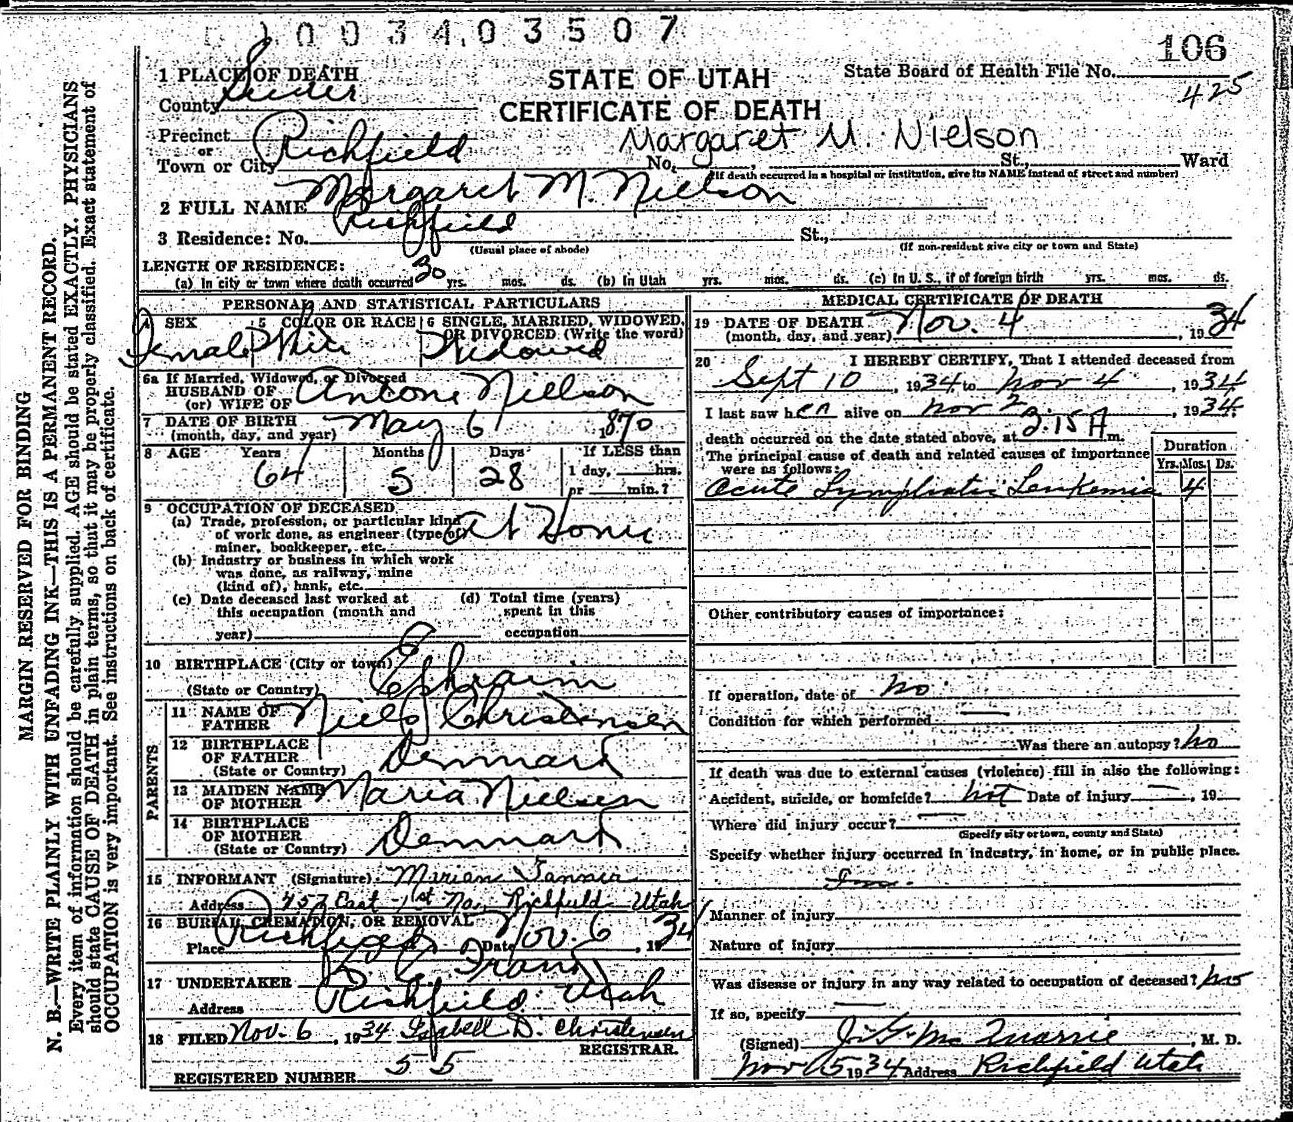 10034,03507
106
1 PLACE OF DEATH
STATE OF UTAH
State Board of Health File No.
425
County Sevier
CERTIFICATE OF DEATH
Precinct
or
Town or City Richfield
Margaret M. Nielson
No. St., Ward
(If death occurred in a hospital or institution, give its NAME instead of street and number)
2 FULL NAME Margaret M. Nielson
3 Residence: No. Richfield St.,
(Usual place of abode) (If non-resident give city or town and State)
LENGTH OF RESIDENCE:
(a) In city or town where death occurred 30 yrs. mos. ds. (b) In Utah yrs. mos. ds. (c) In U. S., if of foreign birth yrs. mos. ds.
PERSONAL AND STATISTICAL PARTICULARS
4 SEX 5 COLOR OR RACE 6 SINGLE, MARRIED, WIDOWED, OR DIVORCED (Write the word)
Female White Widowed
6a If Married, Widowed, or Divorced
HUSBAND OF
(or) WIFE OF Antone Nielson
7 DATE OF BIRTH
(month, day, and year) May 6 1870
8 AGE Years Months Days If LESS than
1 day, hrs.
or min.?
64 5 28
9 OCCUPATION OF DECEASED
(a) Trade, profession, or particular kind
of work done, as engineer (type of)
miner, bookkeeper, etc. At Home
(b) Industry or business in which work
was done, as railway, mine
(kind of), bank, etc.
(c) Date deceased last worked at
this occupation (month and
year)
(d) Total time (years)
spent in this
occupation
10 BIRTHPLACE (City or town)
(State or Country) Ephraim
PARENTS
11 NAME OF
FATHER Niels Christensen
12 BIRTHPLACE
OF FATHER
(State or Country) Denmark
13 MAIDEN NAME
OF MOTHER Maria Nielsen
14 BIRTHPLACE
OF MOTHER
(State or Country) Denmark
15 INFORMANT (Signature) Miriam
Address East 1st No, Richfield Utah
16 BURIAL, CREMATION, OR REMOVAL
Place Richfield Date Nov. 6, 1934
17 UNDERTAKER
Address Richfield Utah
18 FILED Nov. 6, 1934 Isabell D. Christensen
REGISTRAR.
REGISTERED NUMBER 55
MEDICAL CERTIFICATE OF DEATH
19 DATE OF DEATH
(month, day, and year) Nov. 4, 1934
20 I HEREBY CERTIFY, That I attended deceased from
Sept 10, 1934 to Nov 4, 1934
I last saw her alive on Nov 2, 1934
death occurred on the date stated above, at 2:15 A m.
The principal cause of death and related causes of importance
were as follows:
Duration
Yrs. Mos. Ds.
Acute Lymphatic Leukemia 4
Other contributory causes of importance:
If operation, date of no
Condition for which performed
Was there an autopsy? no
If death was due to external causes (violence) fill in also the following:
Accident, suicide, or homicide? not Date of injury , 19
Where did injury occur?
(Specify city or town, county and State)
Specify whether injury occurred in industry, in home, or in public place.
Manner of injury
Nature of injury
Was disease or injury in any way related to occupation of deceased? no
If so, specify
(Signed) J. G. McQuarrie, M. D.
Nov 5 1934 Address Richfield Utah
MARGIN RESERVED FOR BINDING
N. B.—WRITE PLAINLY WITH UNFADING INK—THIS IS A PERMANENT RECORD.
Every item of information should be carefully supplied. AGE should be stated EXACTLY. PHYSICIANS
should state CAUSE OF DEATH in plain terms, so that it may be properly classified. Exact statement of
OCCUPATION is very important. See instructions on back of certificate.